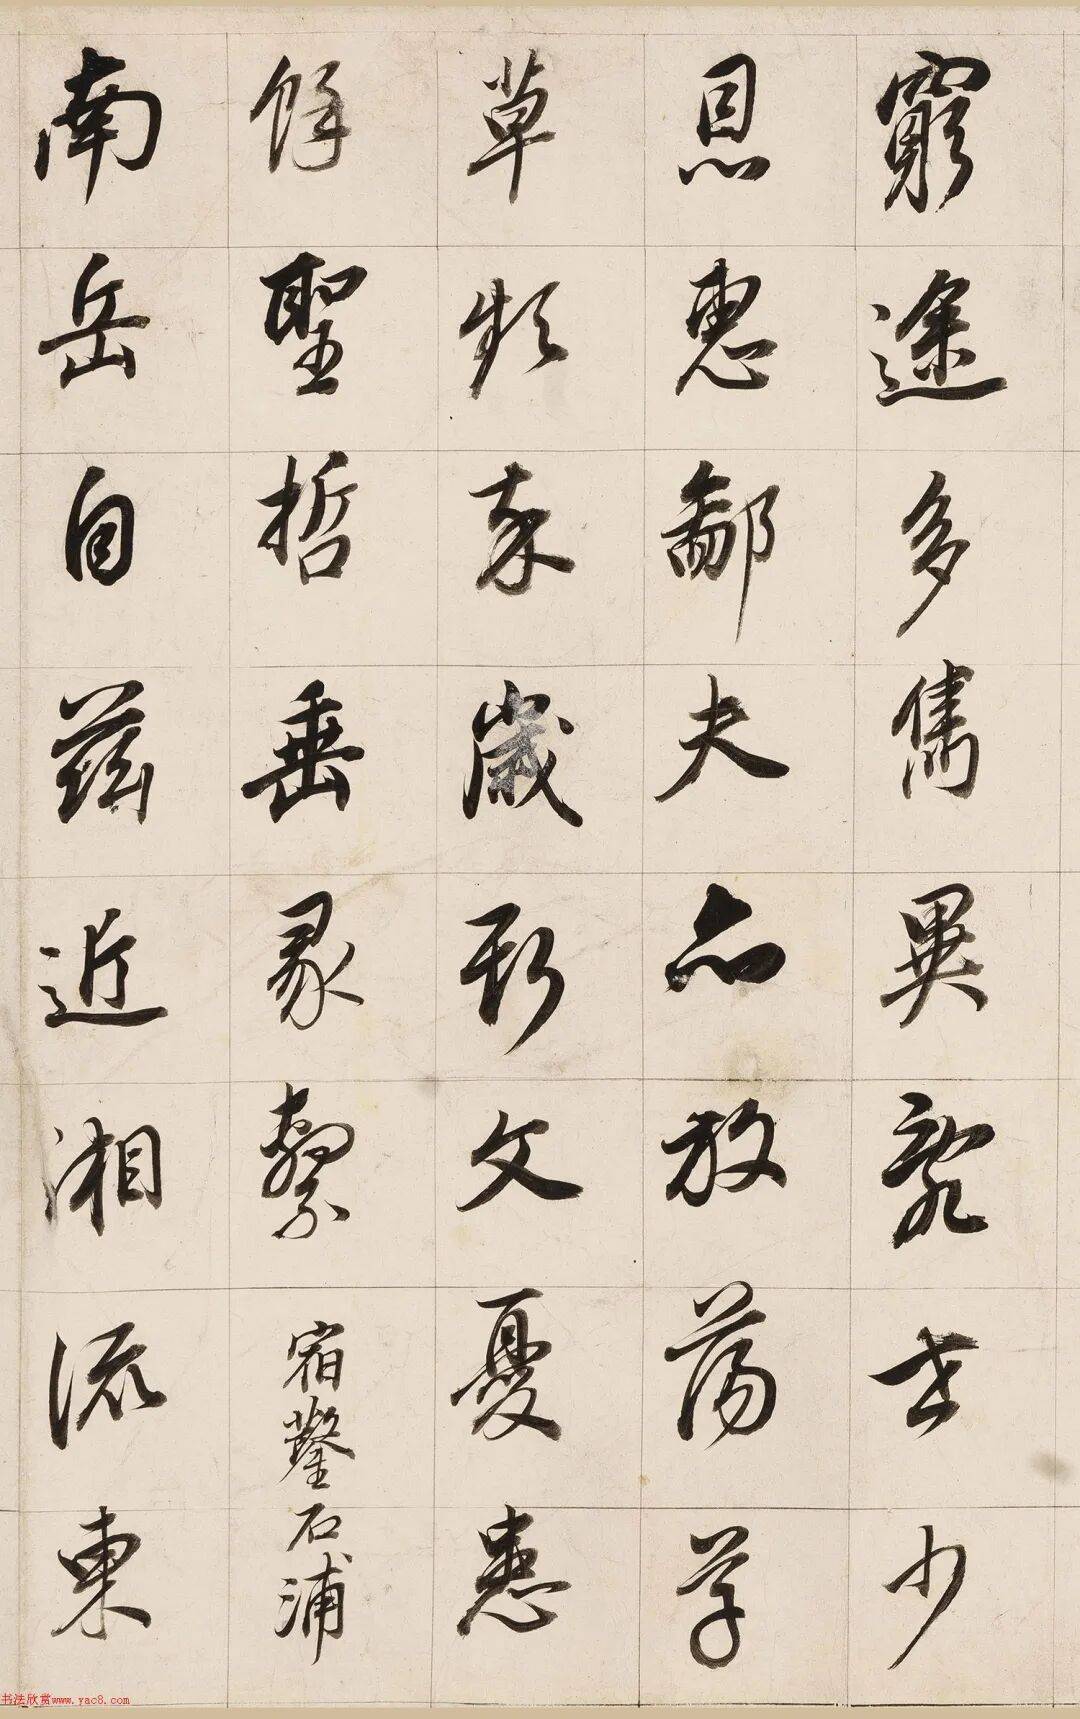 窮途多雋異亂世少
恩惠鄙夫亦放蕩草
草頻卒歲斯文憂患
餘聖哲垂彖繫宿鑿石浦
南岳自茲近湘流東
书法欣赏www.yac8.com